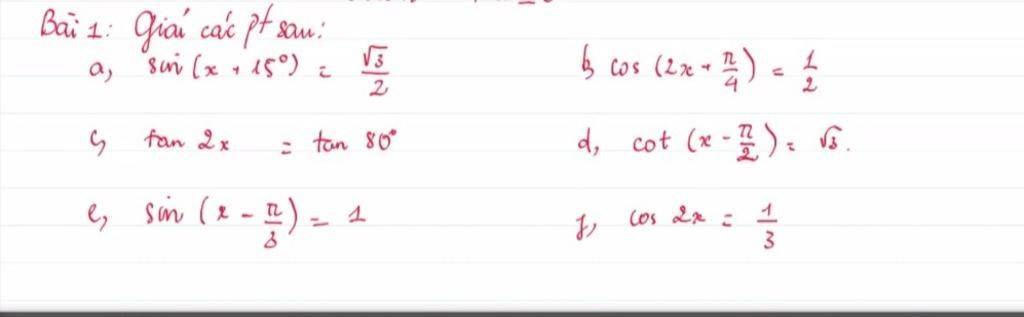 Bài 1: Giải các pt sau:
a, sin (x + 15°) = √3/2 b, cos (2x + π/4) = 1/2
c, tan 2x = tan 80° d, cot (x - π/2) = √3.
e, sin (x - π/3) = 1 f, cos 2x = 1/3